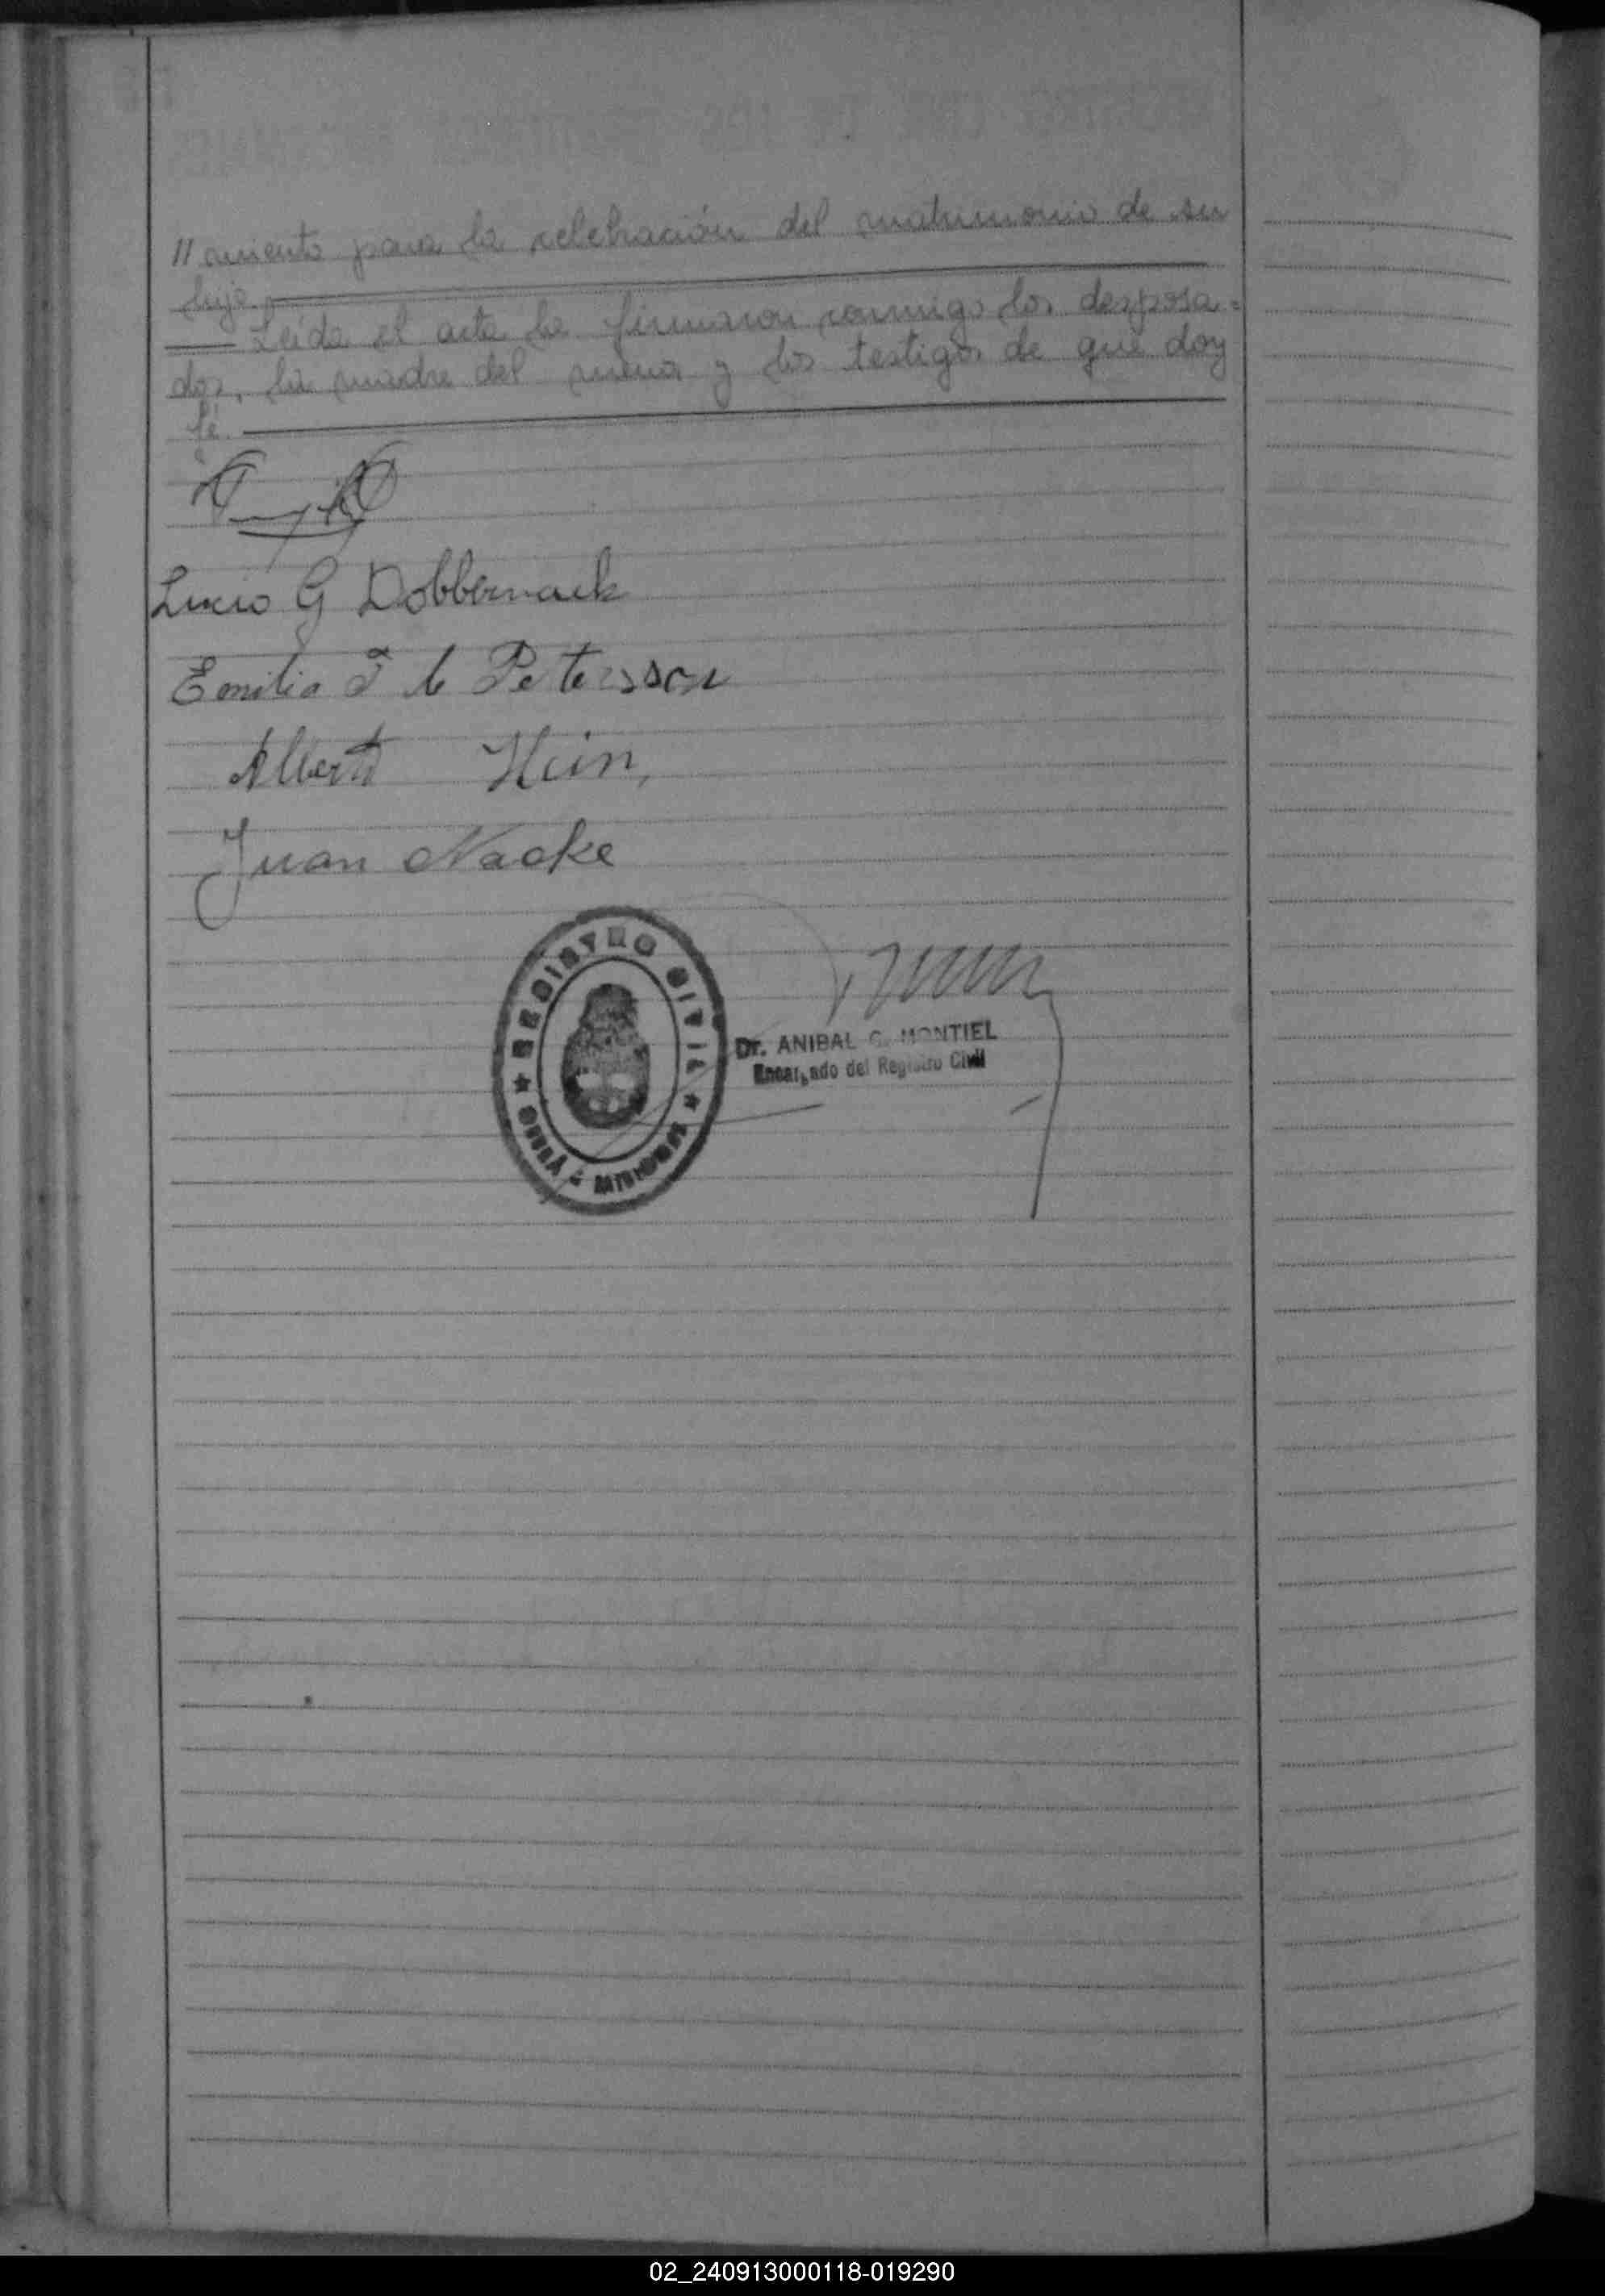 // amiento para la celebración del matrimonio de su
hijo.
Leída el acta la firmaron conmigo los desposa=
dos, la madre del menor y los testigos de que doy
fé.
Lucio G Dobbernack
Emilia F de Petersson
Alberto Hein,
Juan Nacke
REGISTRO CIVIL
OBERÁ - MISIONES
Dr. ANIBAL G. MONTIEL
Encargado del Registro Civil
02_240913000118-019290